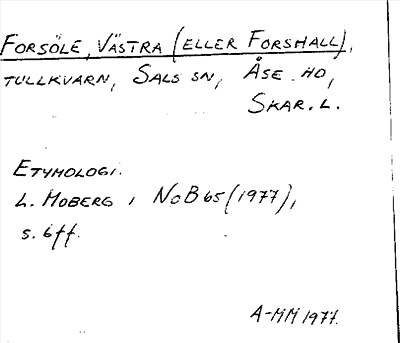 FORSÖLE, VÄSTRA (ELLER FORSHALL),
TULLKVARN, SALS SN, ÅSE HD,
SKAR. L.
ETYMOLOGI.
L. MOBERG i NoB 65 (1977),
s. 6ff.
A-MM 1977.